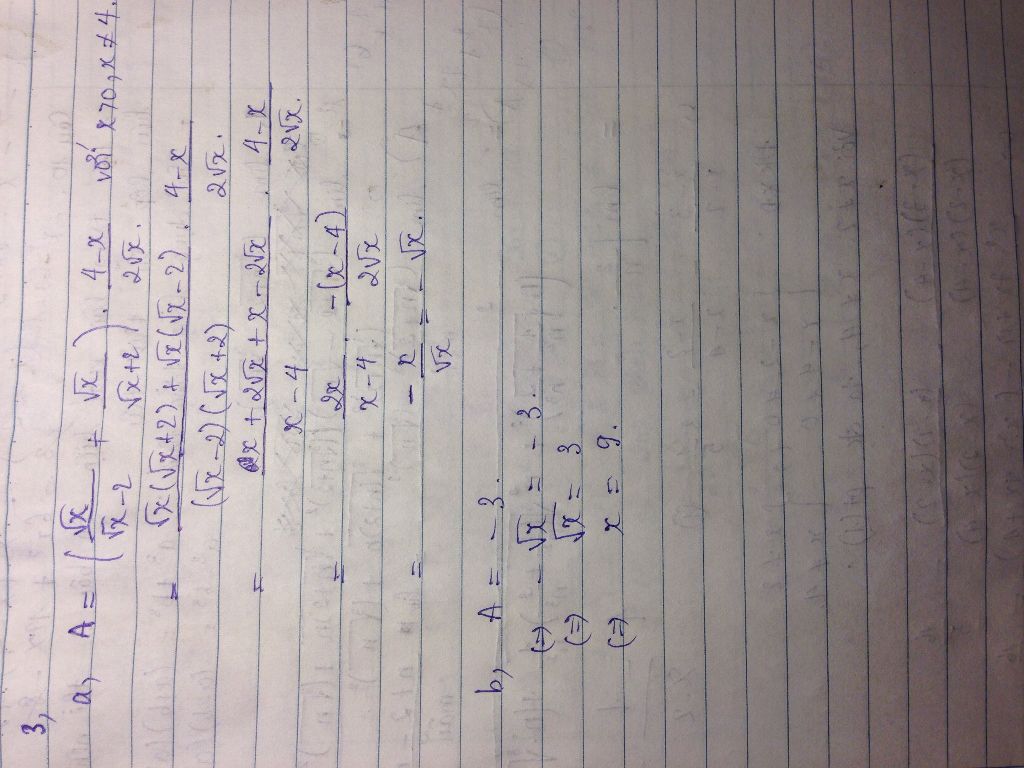 3,
a, A = (√x/(√x-2) + √x/(√x+2)) . (4-x)/(2√x) với x>0, x≠4.
= (√x(√x+2) + √x(√x-2))/((√x-2)(√x+2)) . (4-x)/(2√x).
= (x + 2√x + x - 2√x)/(x-4) . (4-x)/(2√x).
= 2x/(x-4) . (-(x-4))/(2√x)
= - x/√x = - √x.
b, A = -3.
(=) - √x = -3.
(=) √x = 3
(=) x = 9.